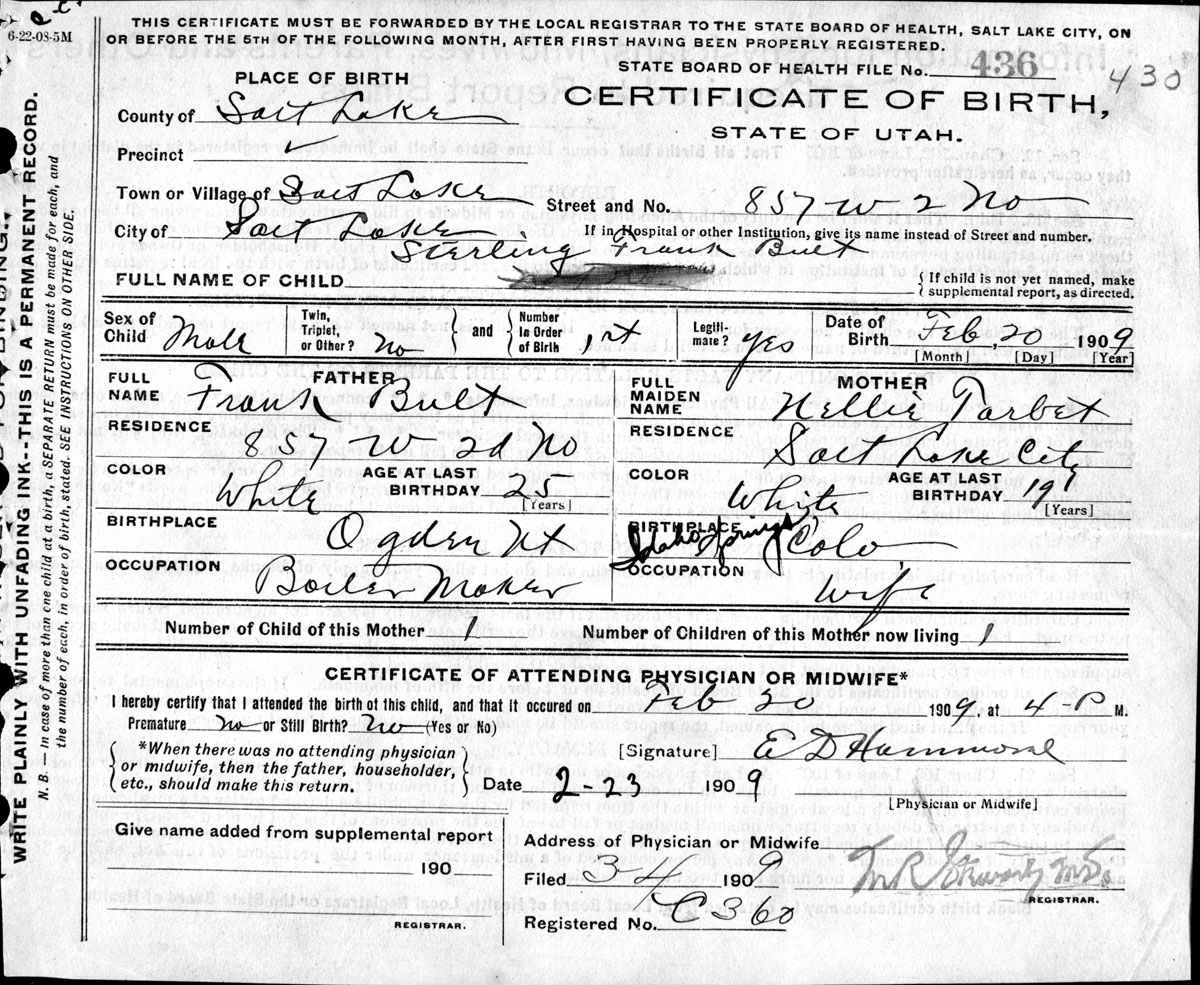 6-22-08-5M
THIS CERTIFICATE MUST BE FORWARDED BY THE LOCAL REGISTRAR TO THE STATE BOARD OF HEALTH, SALT LAKE CITY, ON
OR BEFORE THE 5TH OF THE FOLLOWING MONTH, AFTER FIRST HAVING BEEN PROPERLY REGISTERED.
STATE BOARD OF HEALTH FILE No. 436
430
PLACE OF BIRTH
CERTIFICATE OF BIRTH,
STATE OF UTAH.
County of Salt Lake
Precinct
Town or Village of Salt Lake
Street and No. 857 W 2 No
City of Salt Lake
If in Hospital or other Institution, give its name instead of Street and number.
FULL NAME OF CHILD Sterling Frank Bult
{ If child is not yet named, make
supplemental report, as directed.
Sex of Child Male
Twin, Triplet, or Other? No } and { Number In Order of Birth 1st
Legitimate? Yes
Date of Birth Feb 20 1909
[Month] [Day] [Year]
FATHER
FULL NAME Frank Bult
RESIDENCE 857 W 2d No
COLOR White
AGE AT LAST BIRTHDAY 25
[Years]
BIRTHPLACE Ogden Ut
OCCUPATION Boiler Maker
MOTHER
FULL MAIDEN NAME Nellie Tarbet
RESIDENCE Salt Lake City
COLOR White
AGE AT LAST BIRTHDAY 19
[Years]
BIRTHPLACE Idaho Springs Colo
OCCUPATION Wife
Number of Child of this Mother 1
Number of Children of this Mother now living 1
CERTIFICATE OF ATTENDING PHYSICIAN OR MIDWIFE*
I hereby certify that I attended the birth of this child, and that it occured on Feb 20 1909, at 4-P M.
Premature No or Still Birth? No (Yes or No)
*When there was no attending physician
or midwife, then the father, householder,
etc., should make this return.
[Signature] E D Hammond
Date 2-23 1909
[Physician or Midwife]
Give name added from supplemental report
190
REGISTRAR.
Address of Physician or Midwife
Filed 3-4 1909
REGISTRAR.
Registered No. C 360
WRITE PLAINLY WITH UNFADING INK--THIS IS A PERMANENT RECORD.
N. B.—In case of more than one child at a birth, a SEPARATE RETURN must be made for each, and
the number of each, in order of birth, stated. SEE INSTRUCTIONS ON OTHER SIDE.